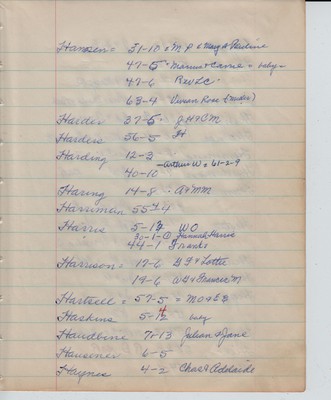 Hansen = 31-10 = M P & Mary & Pauline
47-5 = Marius & Carrie = baby =
47-6 Rev LC.
63-4 Vivian Rose (Mader)
Harder 37-5 J H & C M
Harders 56-5 H
Harding 12-3
40-10 - Arthur W = 61-2-9
Haring 14-8 - A & M M
Harriman 55-4
Harris 5-12 W O
90-1-@ Hannah Harris
44-1 Frank
Harrison = 17-6 G F & Lottie
19-6 W G & Frances M
Hartsell = 57-5 = M O & E B
Haskins 5-12 baby
Haudbine 7-13 Julian & Jane
Hausoner 6-5
Haynes 4-2 Chas & Addaide